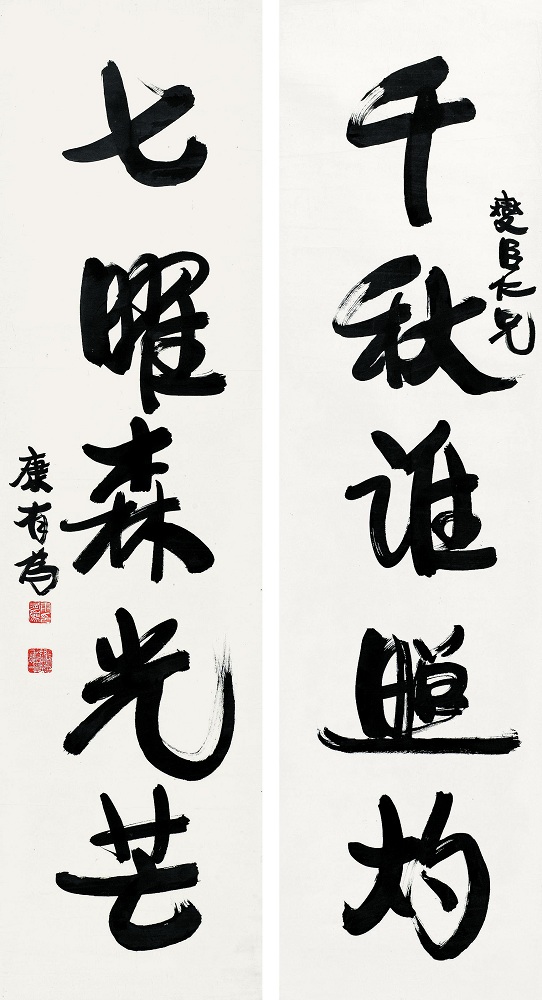 千秋誰照灼
燮臣仁兄
七曜森光芒
康有為